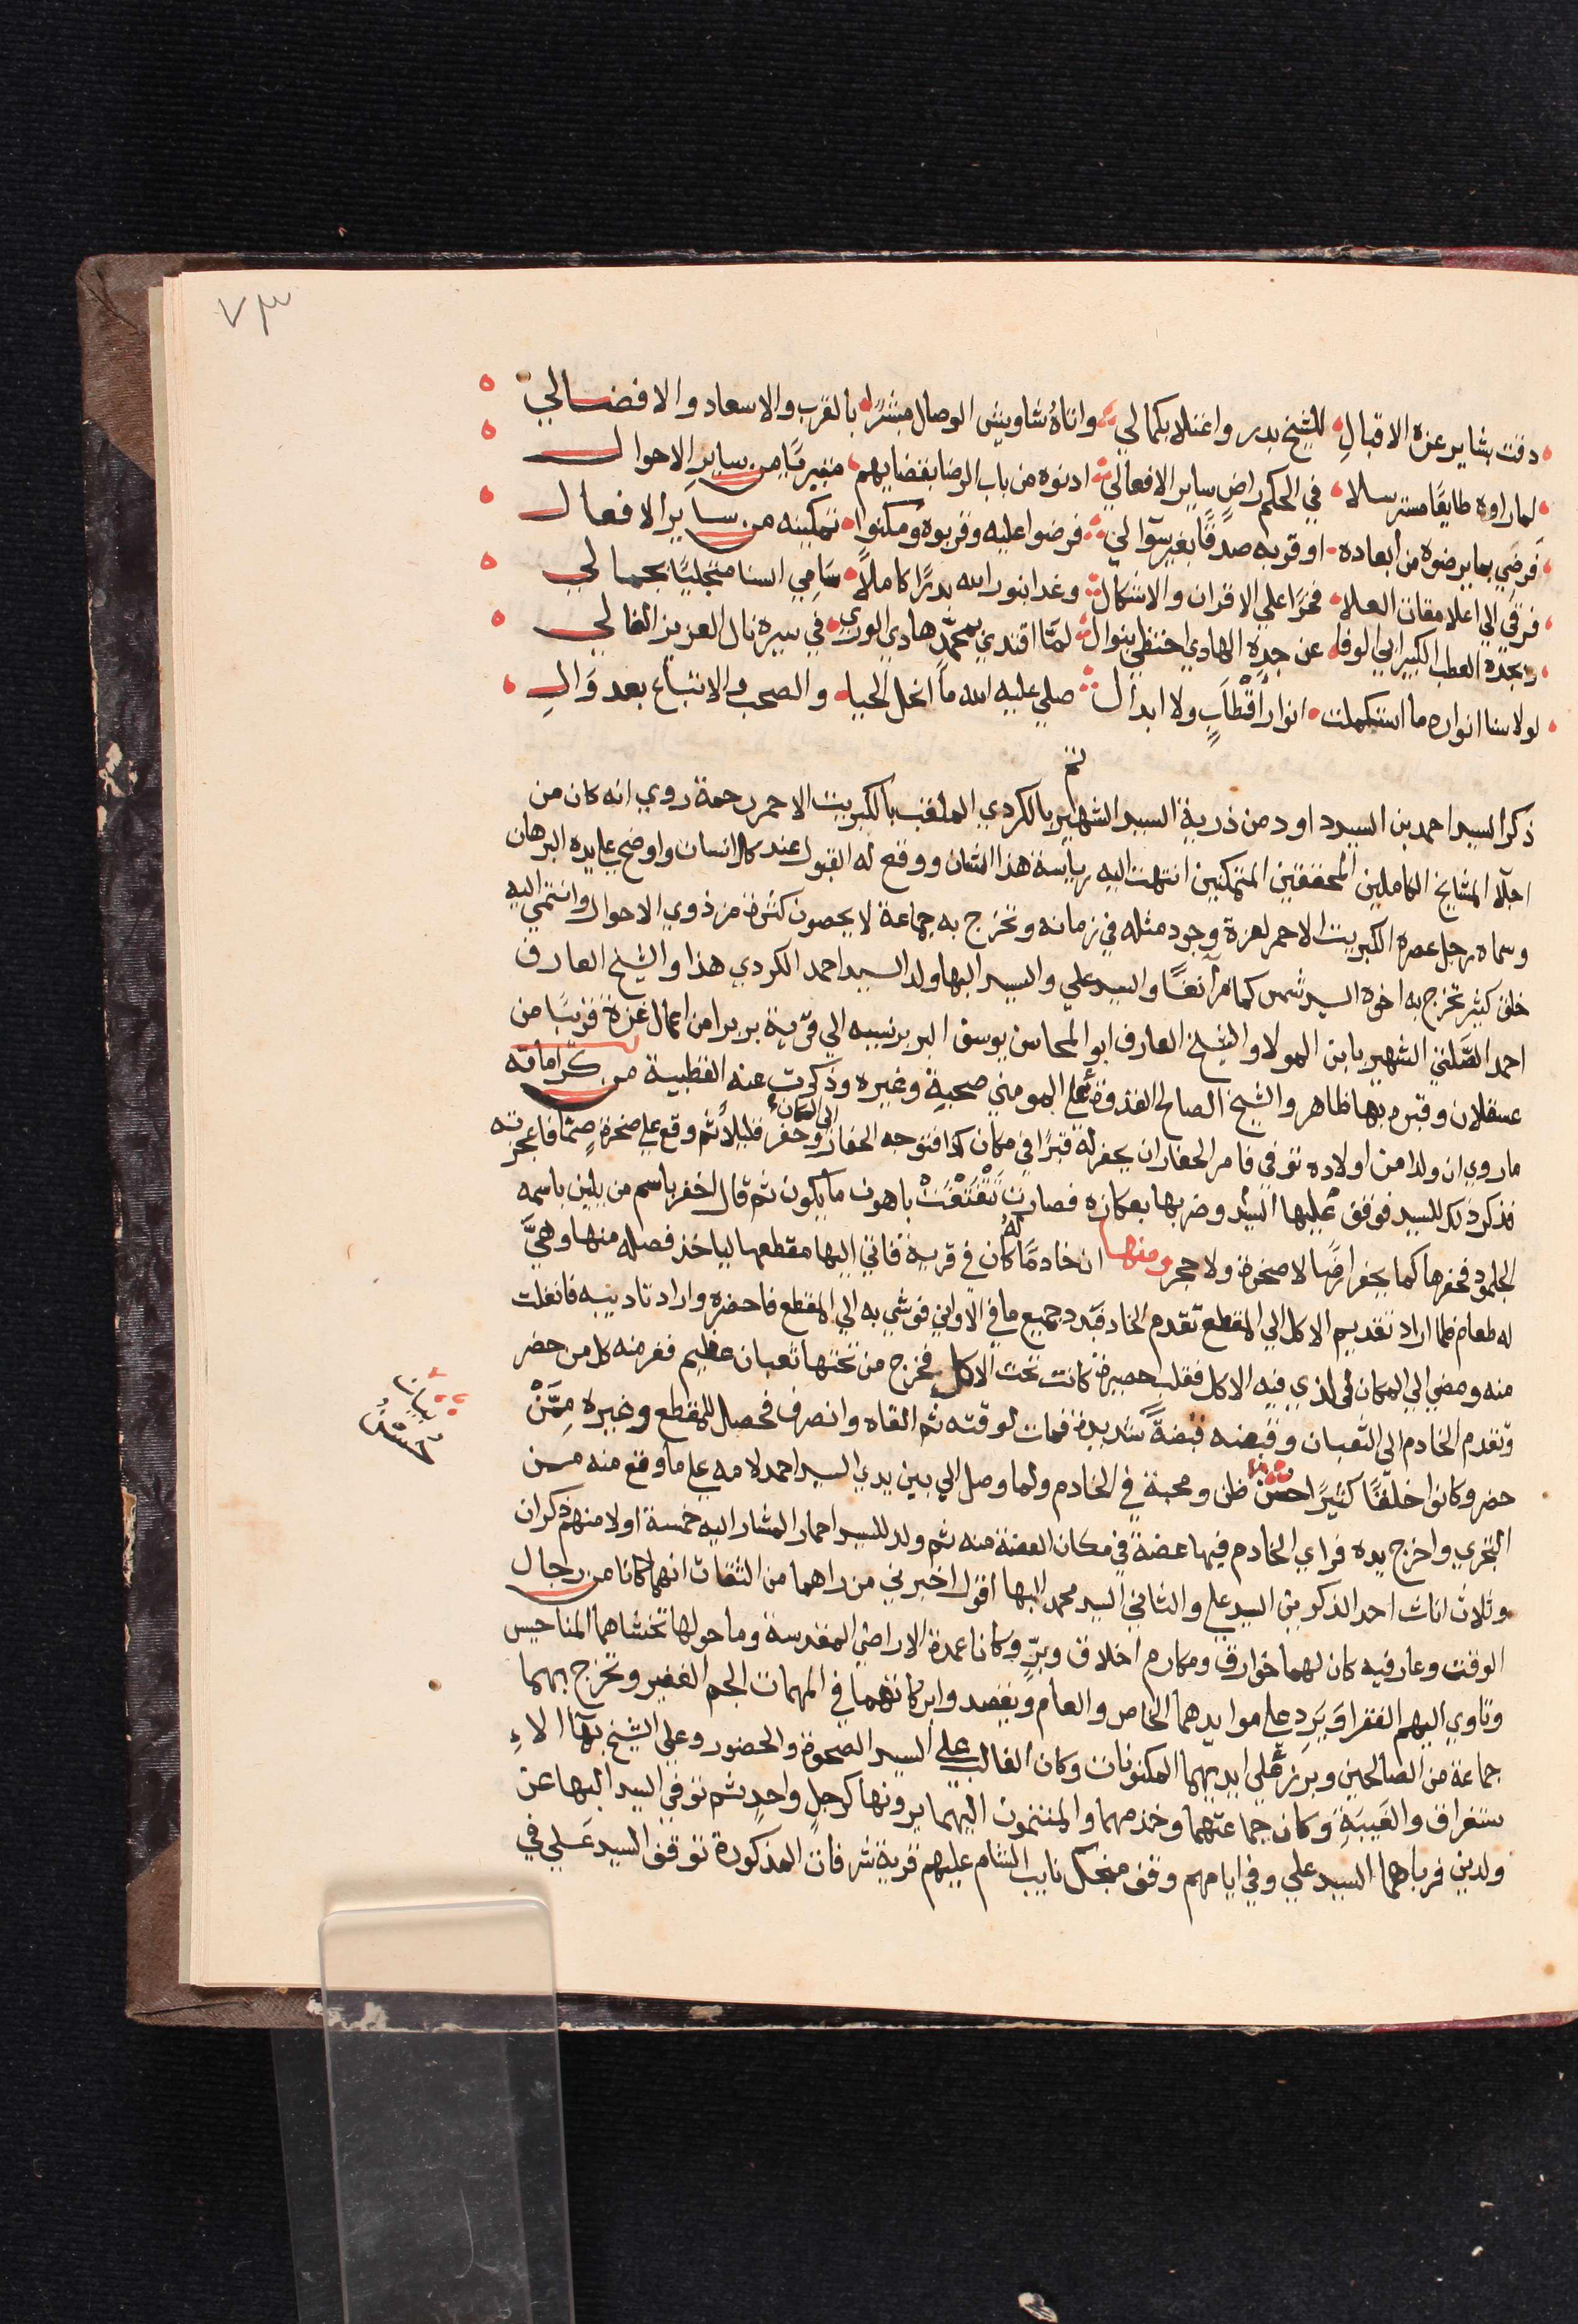 ٧٣
دقت بشاير عزه الاقبالِ للشيخ بدر واعتلا بكمالي واتاهُ شاويش الوصال مبشرًا بالقرب والاسعاد والافضالي
لما راوه طايعًا مسترسلا في الحكم راضٍ ساير الافعالي ادنوه من باب الرضا بقضايهم متبريًا من ساير الاحوال
فرضي بما يرضوه من ابعاده او قربه صدقًا بغير سوآلي فرضوا عليه وقربوه ومكنوا تمكينه من ساير الافعال
فرقي الي اعلا مقات العلا فخرًا علي الاقران والاشكال وغدا بنور الله بدرًا كاملًا سَامِي السنا متجليًا بجمالي
وبجده القطب الكبير ابي الوفا عن جده الهادي احتظي بنوال لمّا اقتدي بمحمدٍ هادي الوري في سيره نال العزيز الغالي
لولا سنا انواره ما استكملت انوار اقْطَابٍ ولا ابدال صلي عليه الله ما انحل الحيا والصحب والاتباع بعد وَالِ
تم
ذكر السيد احمد بن السيد داود من ذرية السيد الشهير بالكردي الملقب بالكبريت الاحمر رحمة روي انه كان من
اجلّا المشايخ الكاملين المحققين المتمكنين انتهت اليه رياسة هذا الشان ووقع له القبول عند كل انسان واوضح علي يده البرهان
وسماه رجل عصره الكبريت الاحمر لعزة وجود مثله في زمانه وتخرج به جماعة لا يحصون كثرة من ذوي الاحوال وانتمي اليه
خلق كثير تخرج به اخوه السيد شمس كما مر آنفًا والسيد علي والسيد البها ولد السيد احمد الكردي هذا والشيخ العارف
احمد الصَّلتي الشهير بابن المولا والشيخ العارف ابو المحاسن يوسف البربر نسبه الي قرية بربرا من اعمال غزة قريبًا من
عسقلان وقبره بها ظاهر والشيخ الصالح القدوة علي المومني صحبة وغيره وذكرت عنه القطبية من كراماته
ماروي ان ولدا من اولاده توفي فامر الحفار ان يحفر له قبرًا في مكان كذا فتوجه الحفار الي المكان وحفر قليلًا ثم وقع علي صخرةٍ صمّا فاعجزته
فذكر ذلك للسيد فوقف عليها السيد وضربها بعكازه فصارت تتفتتْ باهون ما يكون ثم قال احفر باسم من يلين باسمه
الجلمود فحفرها كما يحفر ارضًا لا صخرة ولا حجر ومنها ان خادمًا له كان في قرية فاتي اليها مقطعها لياخذ فصله منها وهيَّ
له طعام فلما اراد تقديم الاكل الي المقطع تقدم الخادم فبدد جميع ما في الاواني فوشي به الي المقطع فاحضره واراد تاديبه فانفلت
منه ومضي الي المكان الذي فيه الاكل فقلب حصيرة كانت تحت الاكل فخرج من تحتها ثعبان عظيم ففر منه كل من حضر
وتقدم الخادم الي الثعبان وقبضه قبضةً شديدة فمات لوقته ثم القاه وانصرف فحصل للمقطع وغيره مِمَّنْ
حضر وكانوا خلقًا كثيرًا حسن ظن ومحبة في الخادم ولما وصل الي بين يدي السيد احمد لامه علي ما وقع منه من
التجري واخرج يده فراي الخادم فيها عضة في مكان العضة منه ثم ولد للسيد احمد المشار اليه خمسة اولاد منهم ذكران
وثلاث اناث احد الذكرين السيد علي والثاني السيد محمد البها اقول اخبرني من راهما من الثقات انهما كانا من رجال
الوقت وعارفيه كان لهما خوارق ومكارم اخلاق وبرٍّ وكانا عمدة الاراضي المقدسة وما حولها تخشاهما المناحيس
وتاوي اليهم الفقرا ويَرِد علي موايدهما الخاص والعام ويقصد وابركاتهما في المهمات الجم الغفير وتخرج بهما
جماعة من الصالحين وبرز علي ايديهما المكنونات وكان الغالب علي السيد الصحوة والحضور وعلي الشيخ بهآ الاِ
ستغراق والغَيبَةِ وكان جماعتهما وخدمهما والمنتمون اليهما يرونها كرجلٍ واحدٍ ثم توفي السيد البها عن
ولدين فرباهما السيد علي وفي ايامهم وقف منجك نايب الشام عليهم قرية شرفات المذكورة توقف السيد علي في